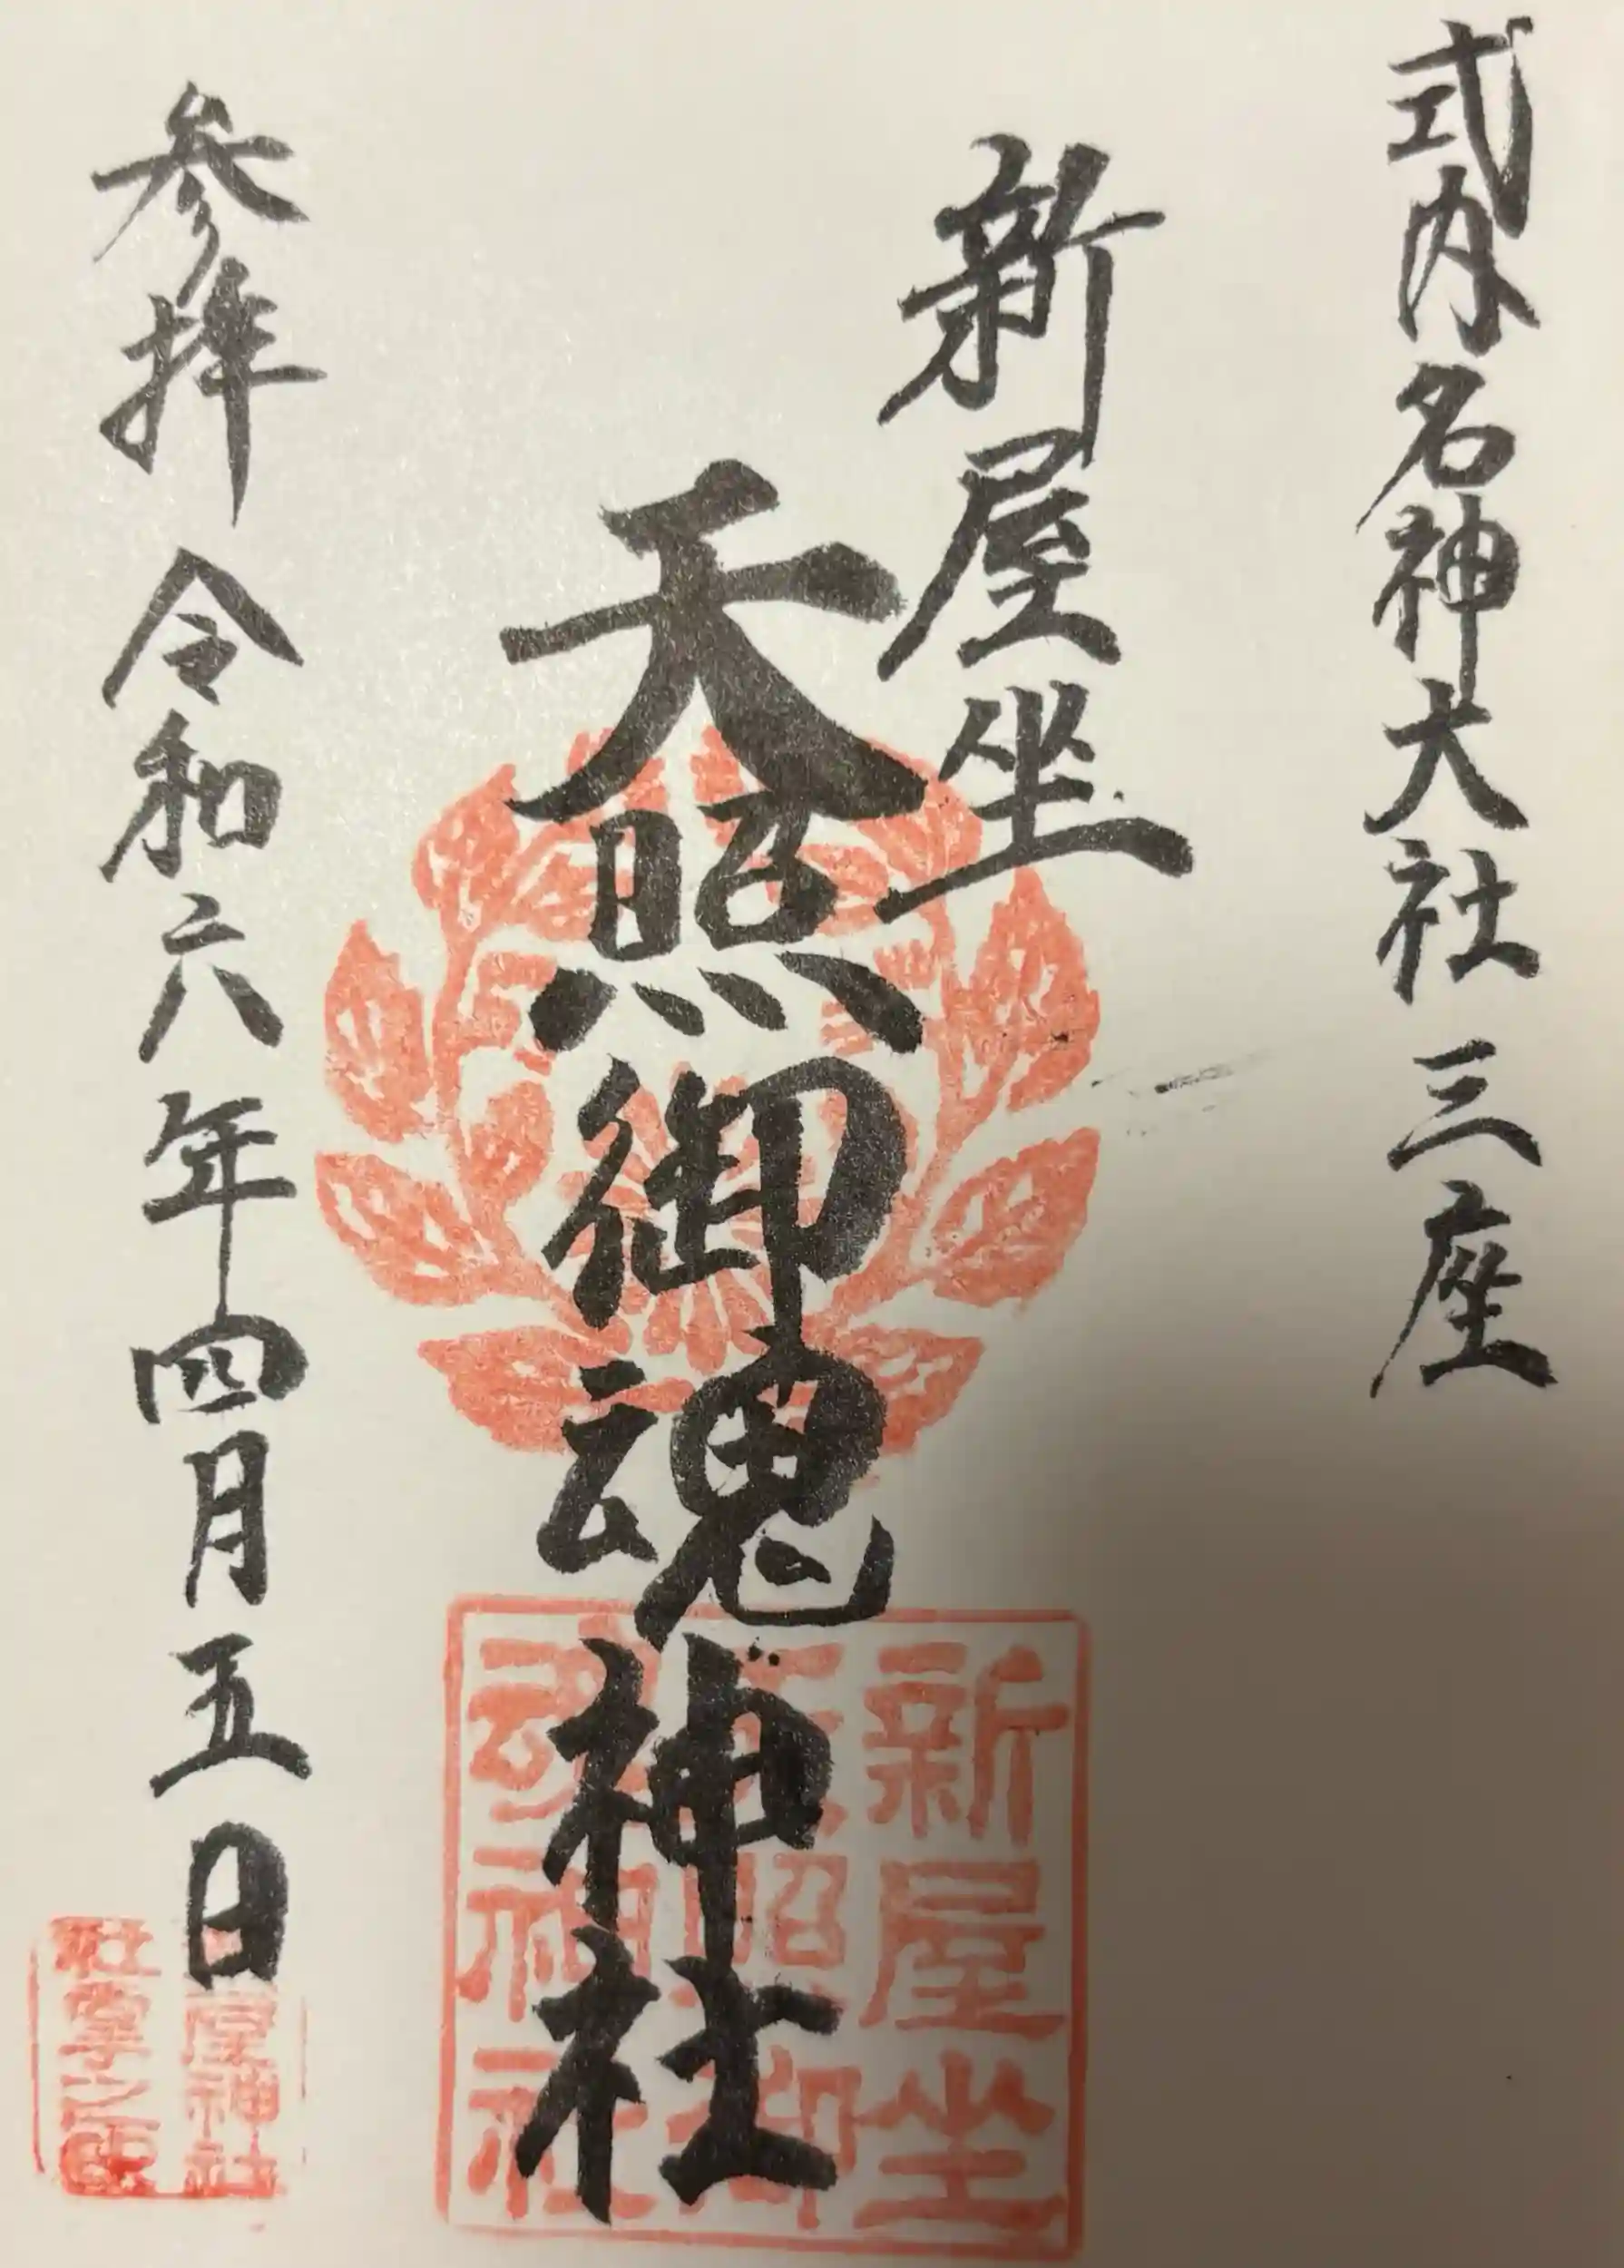 式内名神大社 三座
新屋坐
天照御魂神社
参拝 令和六年四月五日
新屋坐
天照御
魂神社
屋神社
社掌之印